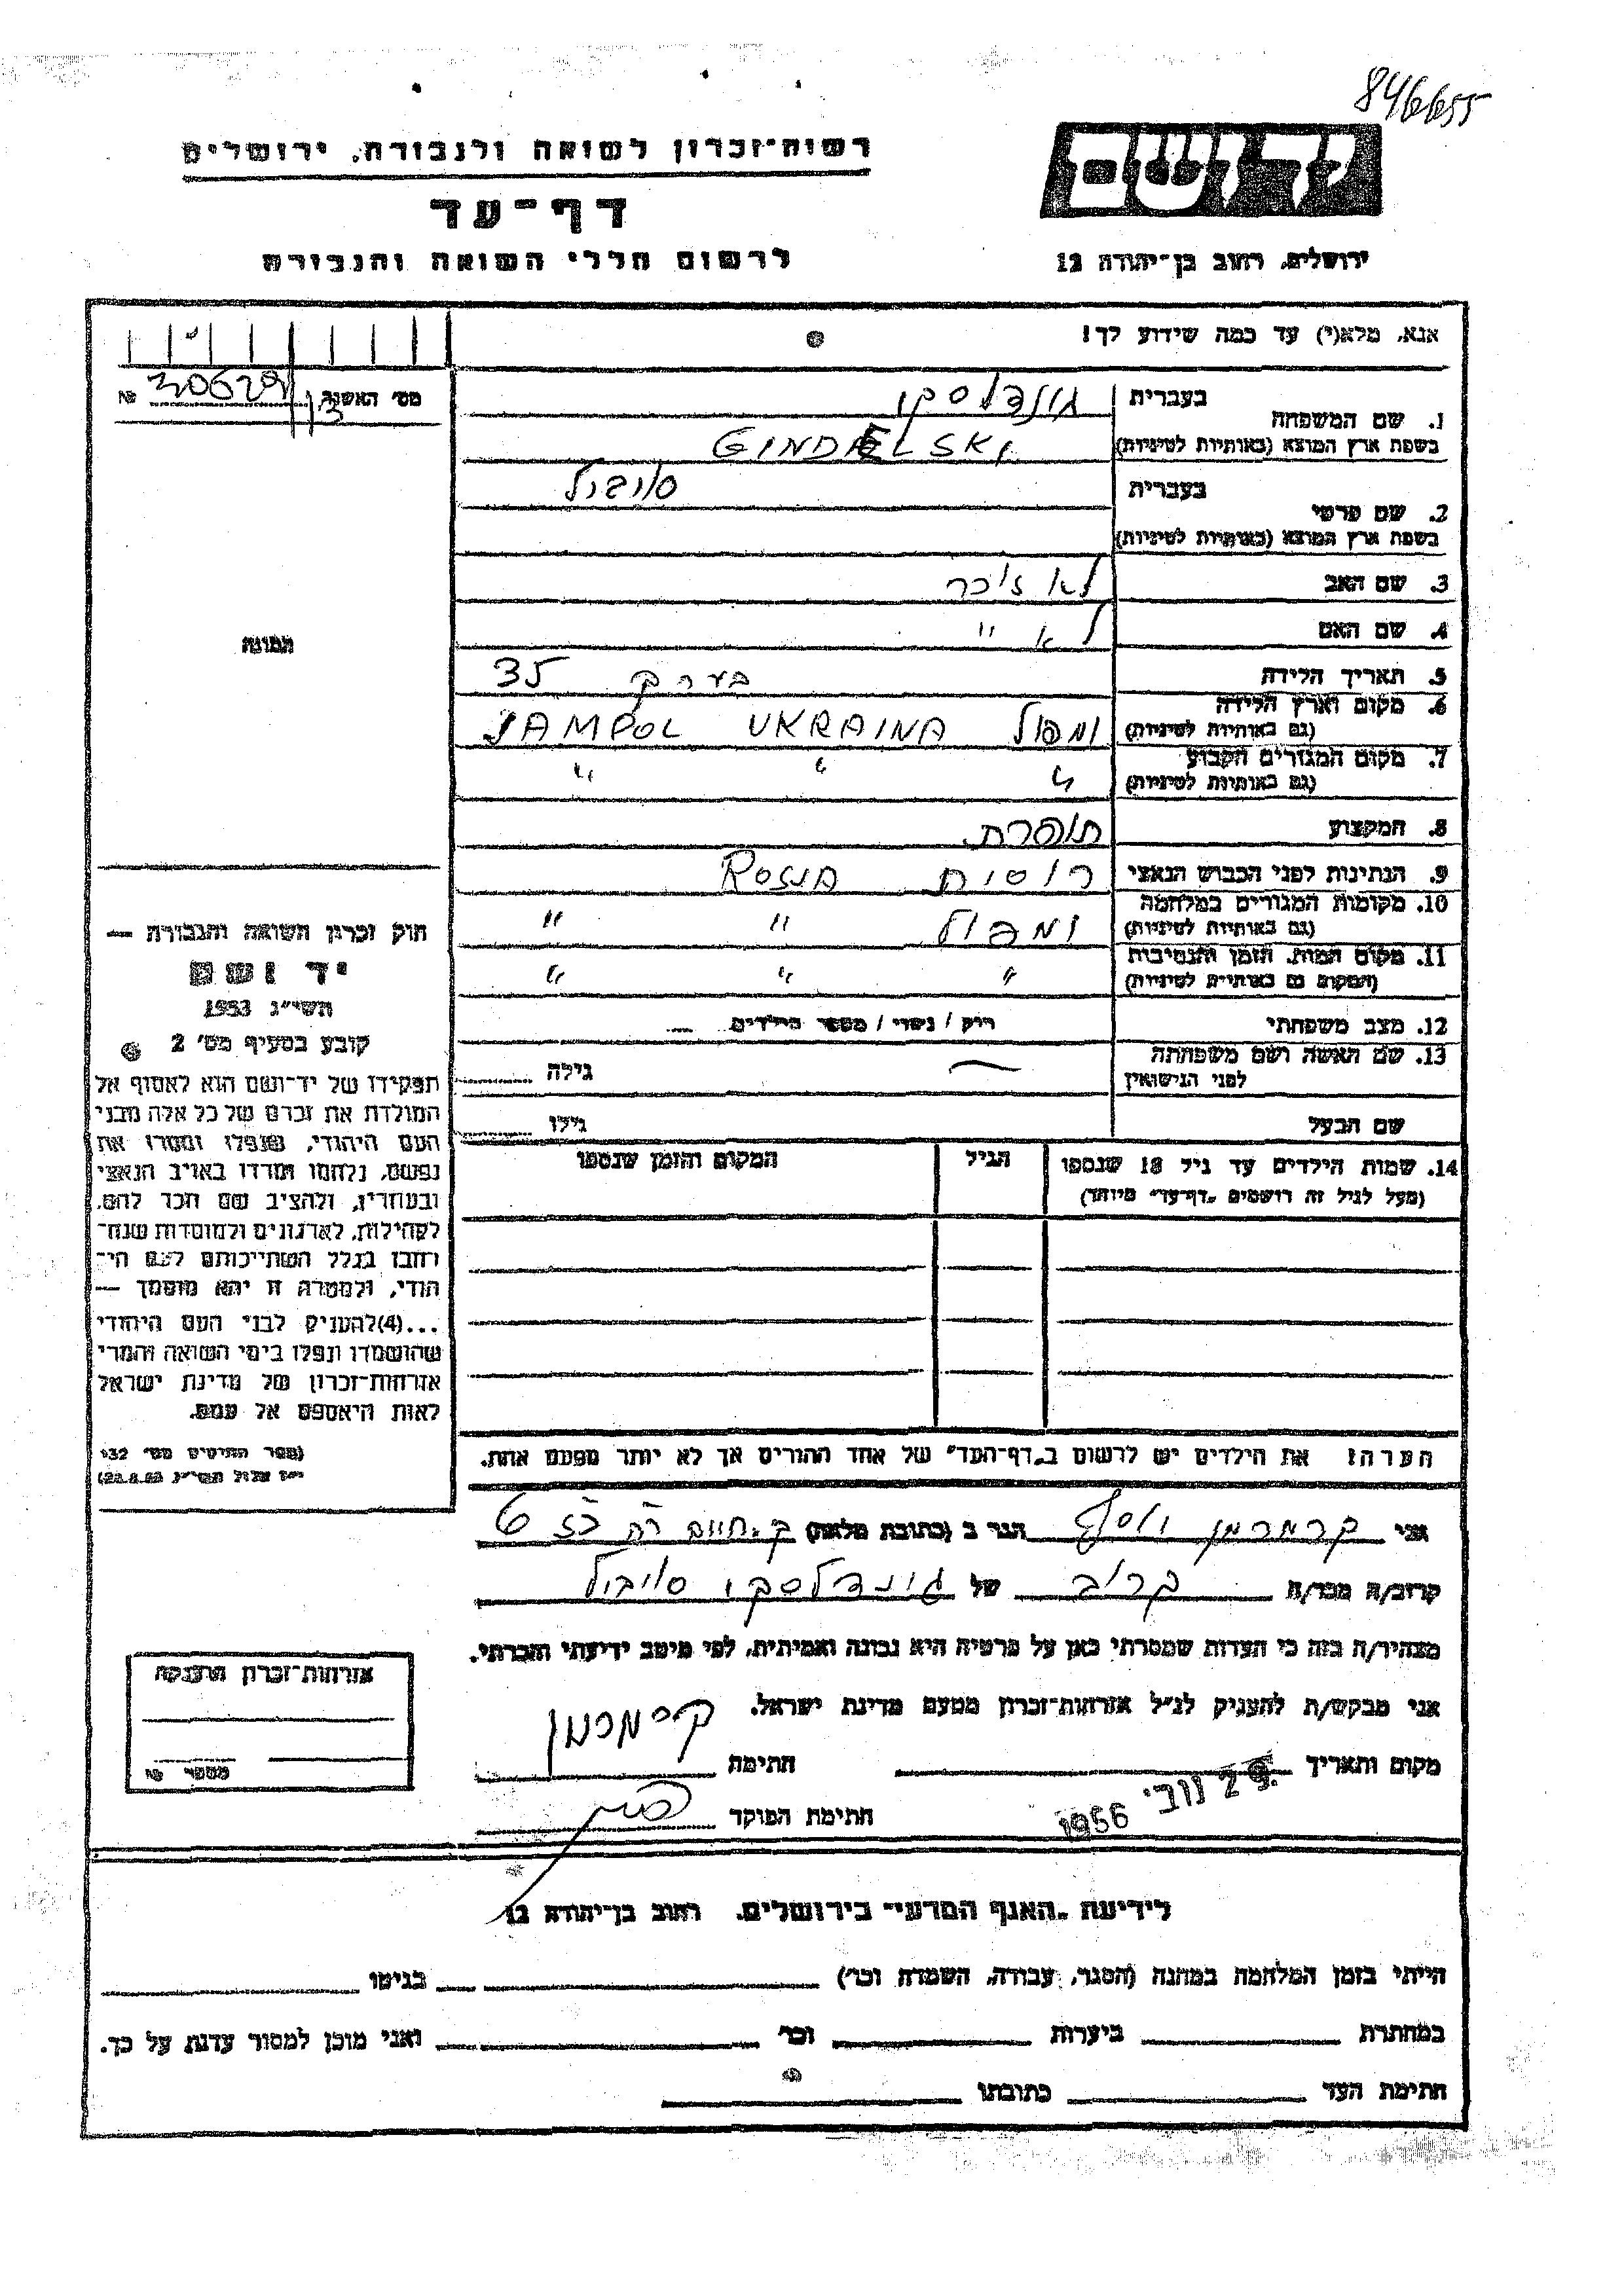 846655
רשות-זכרון לשואה ולגבורה, ירושלים
יד ושם
דף-עד
לרשום חללי השואה והגבורה
ירושלים, רחוב בן-יהודה 12
אנא, מלא(י) עד כמה שידוע לך!
מס' האשנה №
1. שם המשפחה
בעברית גינדלסקי
בשפת ארץ המוצא (באותיות לטיניות) GINDELSKI
2. שם פרטי
בעברית סויבול
בשפת ארץ המוצא (באותיות לטיניות)
3. שם האב לא זוכר
4. שם האם לא "
5. תאריך הלידה בערך 35
6. מקום וארץ הלידה
(גם באותיות לטיניות) ימפול JAMPOL UKRAINA
7. מקום המגורים הקבוע
(גם באותיות לטיניות) " " "
8. המקצוע תופרת.
9. הנתינות לפני הכבוש הנאצי רוסית ROSIA
10. מקומות המגורים במלחמה
(גם באותיות לטיניות) ימפול " "
11. מקום המות, הזמן והנסיבות
(המקום גם באותיות לטיניות) " " "
12. מצב משפחתי רווק / נשוי / מספר הילדים
13. שם האשה ושם משפחתה
לפני הנישואין גילה
שם הבעל גילו
14. שמות הילדים עד גיל 18 שנספו הגיל המקום והזמן שנספו
(מעל לגיל זה רושמים "דף-עד" מיוחד)
הערה: את הילדים יש לרשום ב"דף-העד" של אחד ההורים אך לא יותר מפעם אחת.
התמונה
חוק זכרון השואה והגבורה —
יד ושם
תשי"ג 1953
קובע בסעיף מס' 2
תפקידו של יד-ושם הוא לאסוף אל
המולדת את זכרם של כל אלה מבני
העם היהודי, שנפלו ומסרו את
נפשם, נלחמו ומרדו באויב הנאצי
ובעוזריו, ולהציב שם וזכר להם,
לקהילות, לארגונים ולמוסדות שנח-
רבו בגלל השתייכותם לעם הי-
הודי, ולמטרה זו יהא מוסמך —
...(4)להעניק לבני העם היהודי
שהושמדו ונפלו בימי השואה והמרי
אזרחות-זכרון של מדינת ישראל
לאות היאספם אל עמם.
(ספר החוקים מס' 132
י"ז אלול תשי"ג 28.8.53)
אני קרמרמן יוסף הגר ב (כתובת מלאה) ק. חיים
קרוב/ה מכר/ה קרוב של גינדלסקי סויבול
מצהיר/ה בזה כי העדות שמסרתי כאן על פרטיה היא נכונה ואמיתית, לפי מיטב ידיעתי והכרתי.
אני מבקש/ת להעניק לנ"ל אזרחות-זכרון מטעם מדינת ישראל.
מקום ותאריך 29 נוב' 1956 חתימה
חתימת הפוקד
אזרחות-זכרון הוענקה
מספר №
לידיעת "האגף המדעי" בירושלים, רחוב בן-יהודה 12
הייתי בזמן המלחמה במחנה (הסגר, עבודה, השמדה וכו') בגיטו
במחתרת ביערות וכו' ואני מוכן למסור עדות על כך.
חתימת העד כתובתו